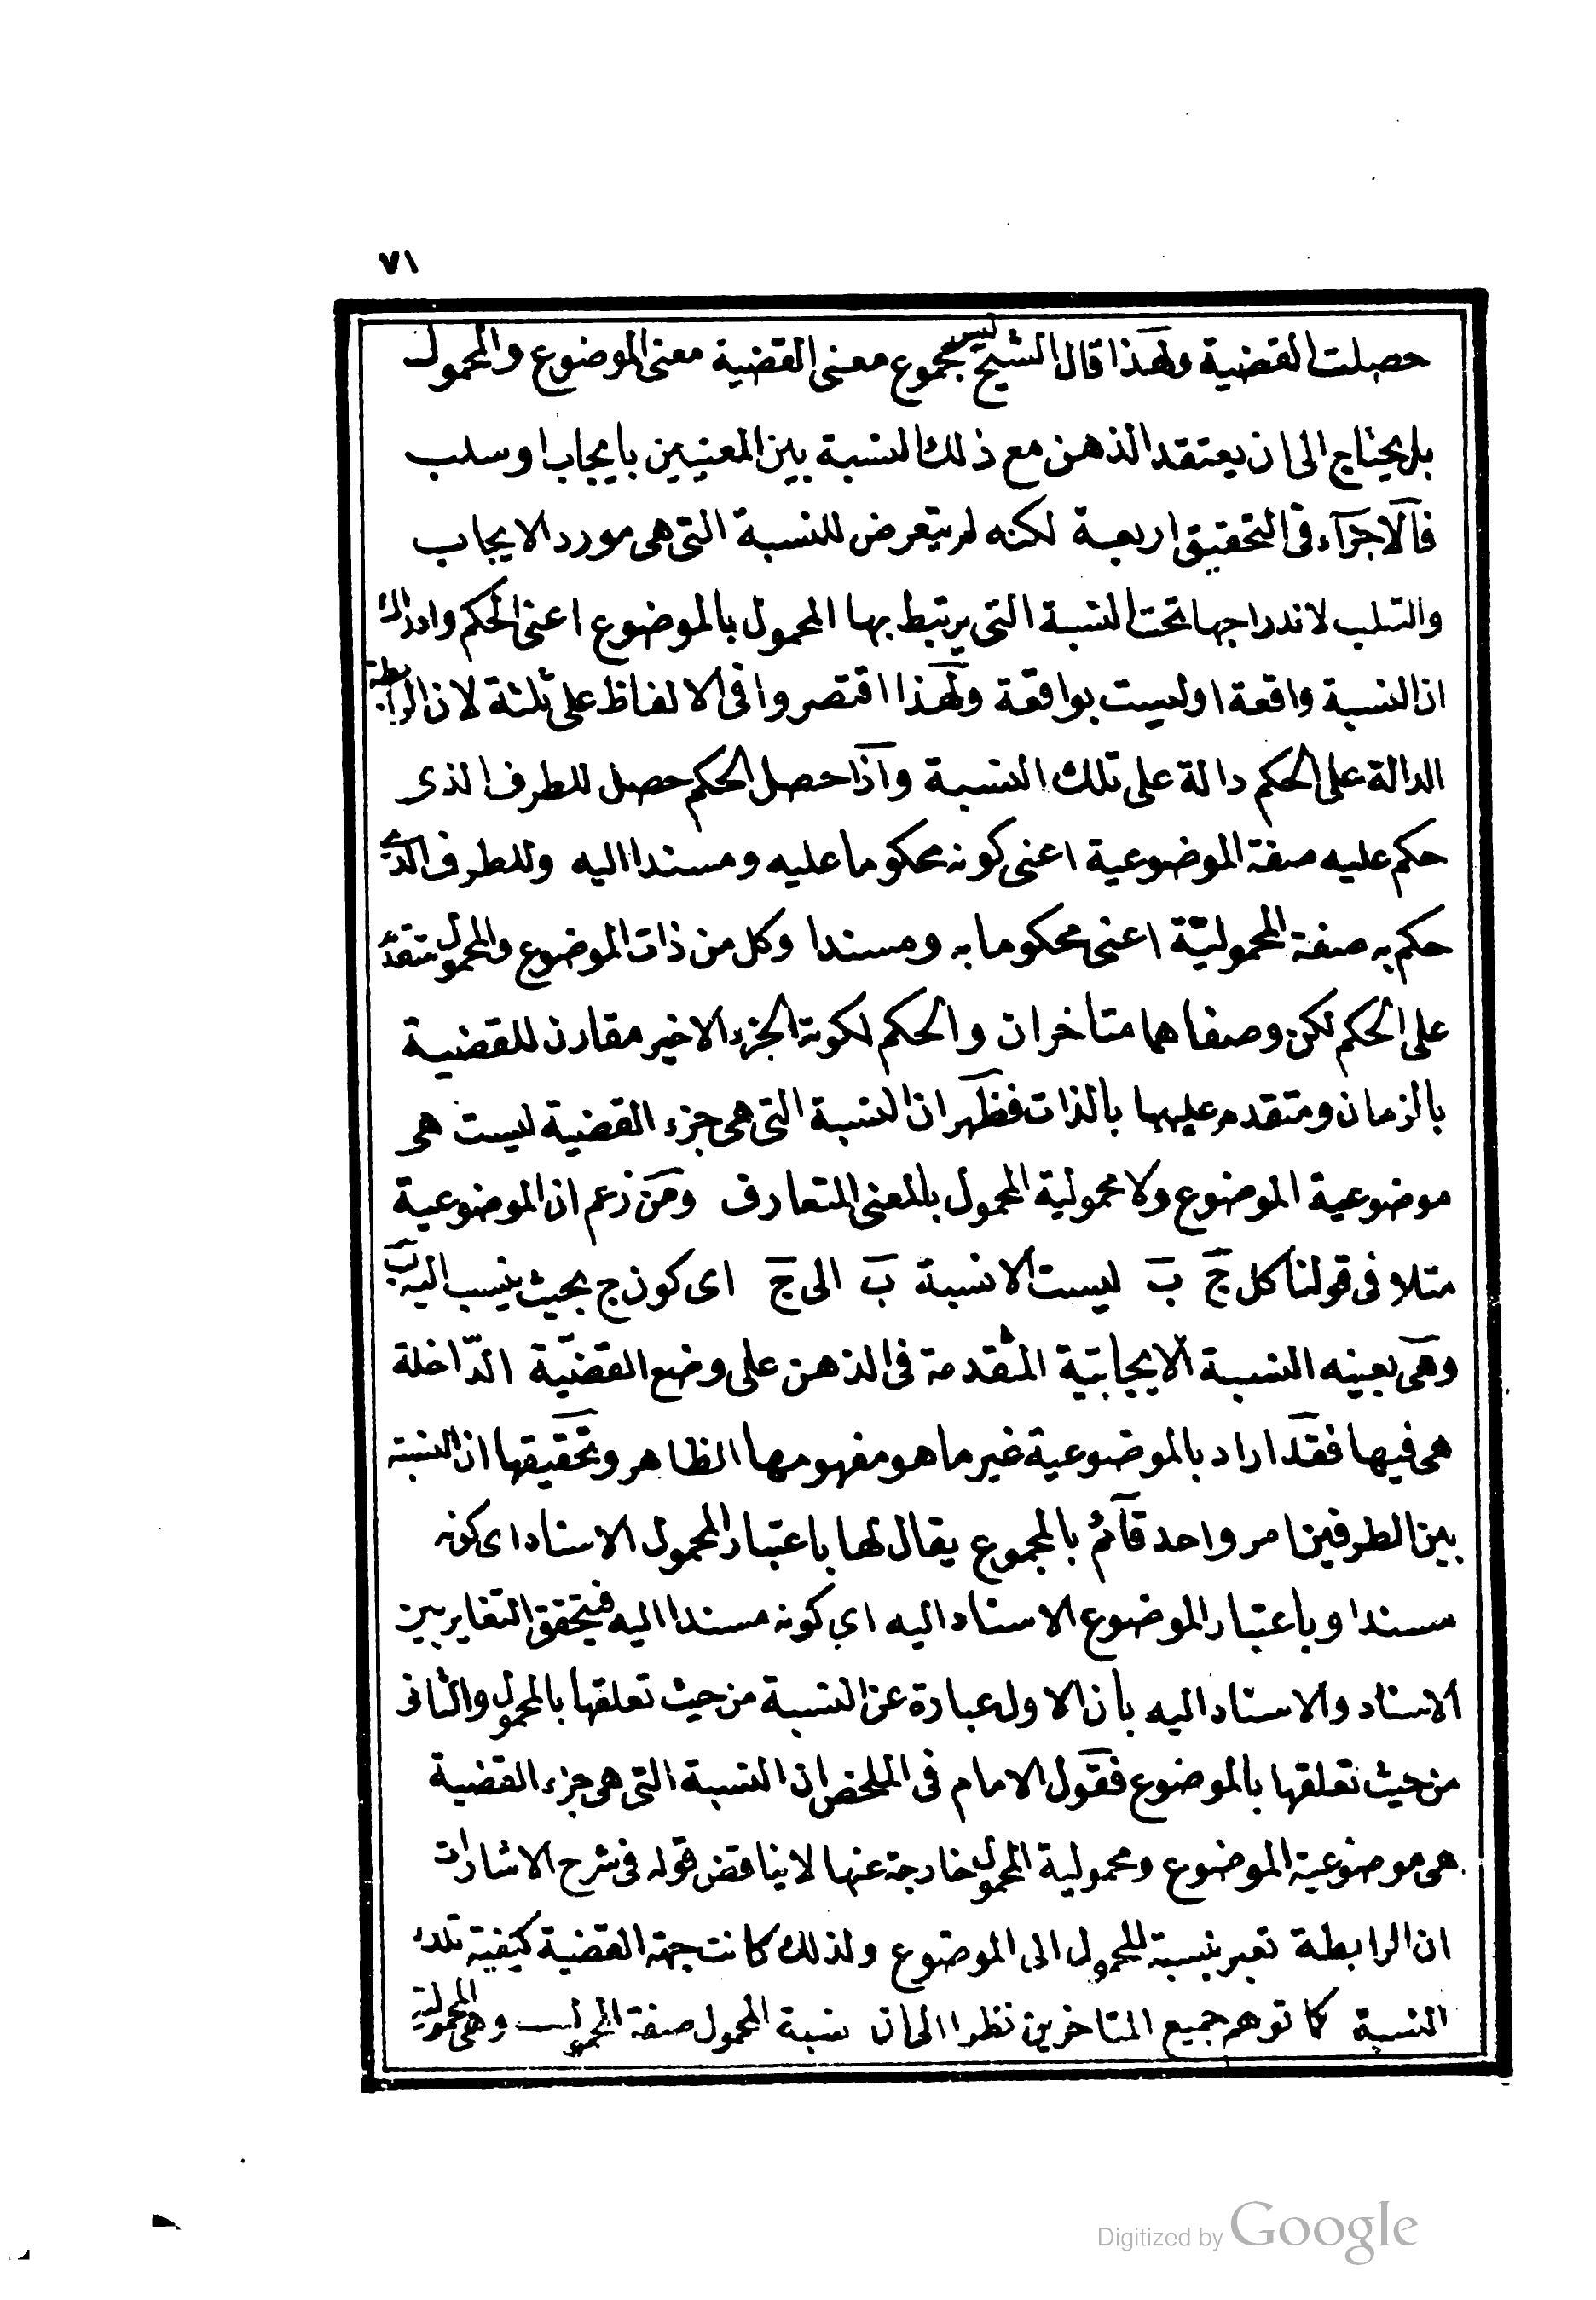 ٧١
حصلت القضية ولهذا قال الشيخ ليس مجموع معنى القضية معنى الموضوع والمحمول
بل يحتاج الى ان يعتقد الذهن مع ذلك النسبة بين المعنيين بايجاب او سلب
فالاجزآء فى التحقيق اربعة لكنه لم يتعرض للنسبة التى هى مورد الايجاب
والسلب لاندراجها تحت النسبة التى يرتبط بها المحمول بالموضوع اعنى الحكم وادراك
ان النسبة واقعة او ليست بواقعة ولهذا اقتصروا فى الالفاظ على ثلثة لان الرابطة
الدالة على الحكم دالة على تلك النسبة واذا حصل الحكم حصل للطرف الذى
حكم عليه صفة الموضوعية اعنى كونه محكوما عليه ومسندا اليه وللطرف الذى
حكم به صفة المحموليّة اعنى محكوما به ومسندا وكل من ذات الموضوع والمحمول متقدم
على الحكم لكن وصفاهما متاخران والحكم لكونه الجزء الاخير مقارن للقضية
بالزمان ومتقدم عليها بالذات فظهر ان النسبة التى هى جزء القضية ليست هى
موضوعية الموضوع ولا محمولية المحمول بالمعنى المتعارف ومن زعم ان الموضوعية
مثلا فى قولنا كل ج ب ليست الا نسبة ب الى ج اى كون ج بحيث ينسب اليه ب
وهى بعينه النسبة الايجابيّة المتقدمة فى الذهن على وضع القضيّة الدّاخلة
هى فيها فقد اراد بالموضوعية غير ما هو مفهومها الظاهر وتحقيقها ان النسبة
بين الطرفين امر واحد قآئم بالمجموع يقال لها باعتبار المحمول الاسناد اى كونه
مسندا وباعتبار الموضوع الاسناد اليه اى كونه مسندا اليه فيتحقق التغاير بين
الاسناد والاسناد اليه بان الاول عبارة عن النسبة من حيث تعلقها بالمحمول والثانى
من حيث تعلقها بالموضوع فقول الامام فى الملخص ان النسبة التى هى جزء القضية
هى موضوعية الموضوع ومحمولية المحمول خارجة عنها لا يناقض قوله فى شرح الاشارات
ان الرابطة تعبر بنسبة للمحمول الى الموضوع ولذلك كانت جهة القضية كيفية تلك
النسبة كما توهم جميع المتاخرين نظرا الى ان نسبة المحمول صفة المحمول وهى المحمولية
Digitized by Google